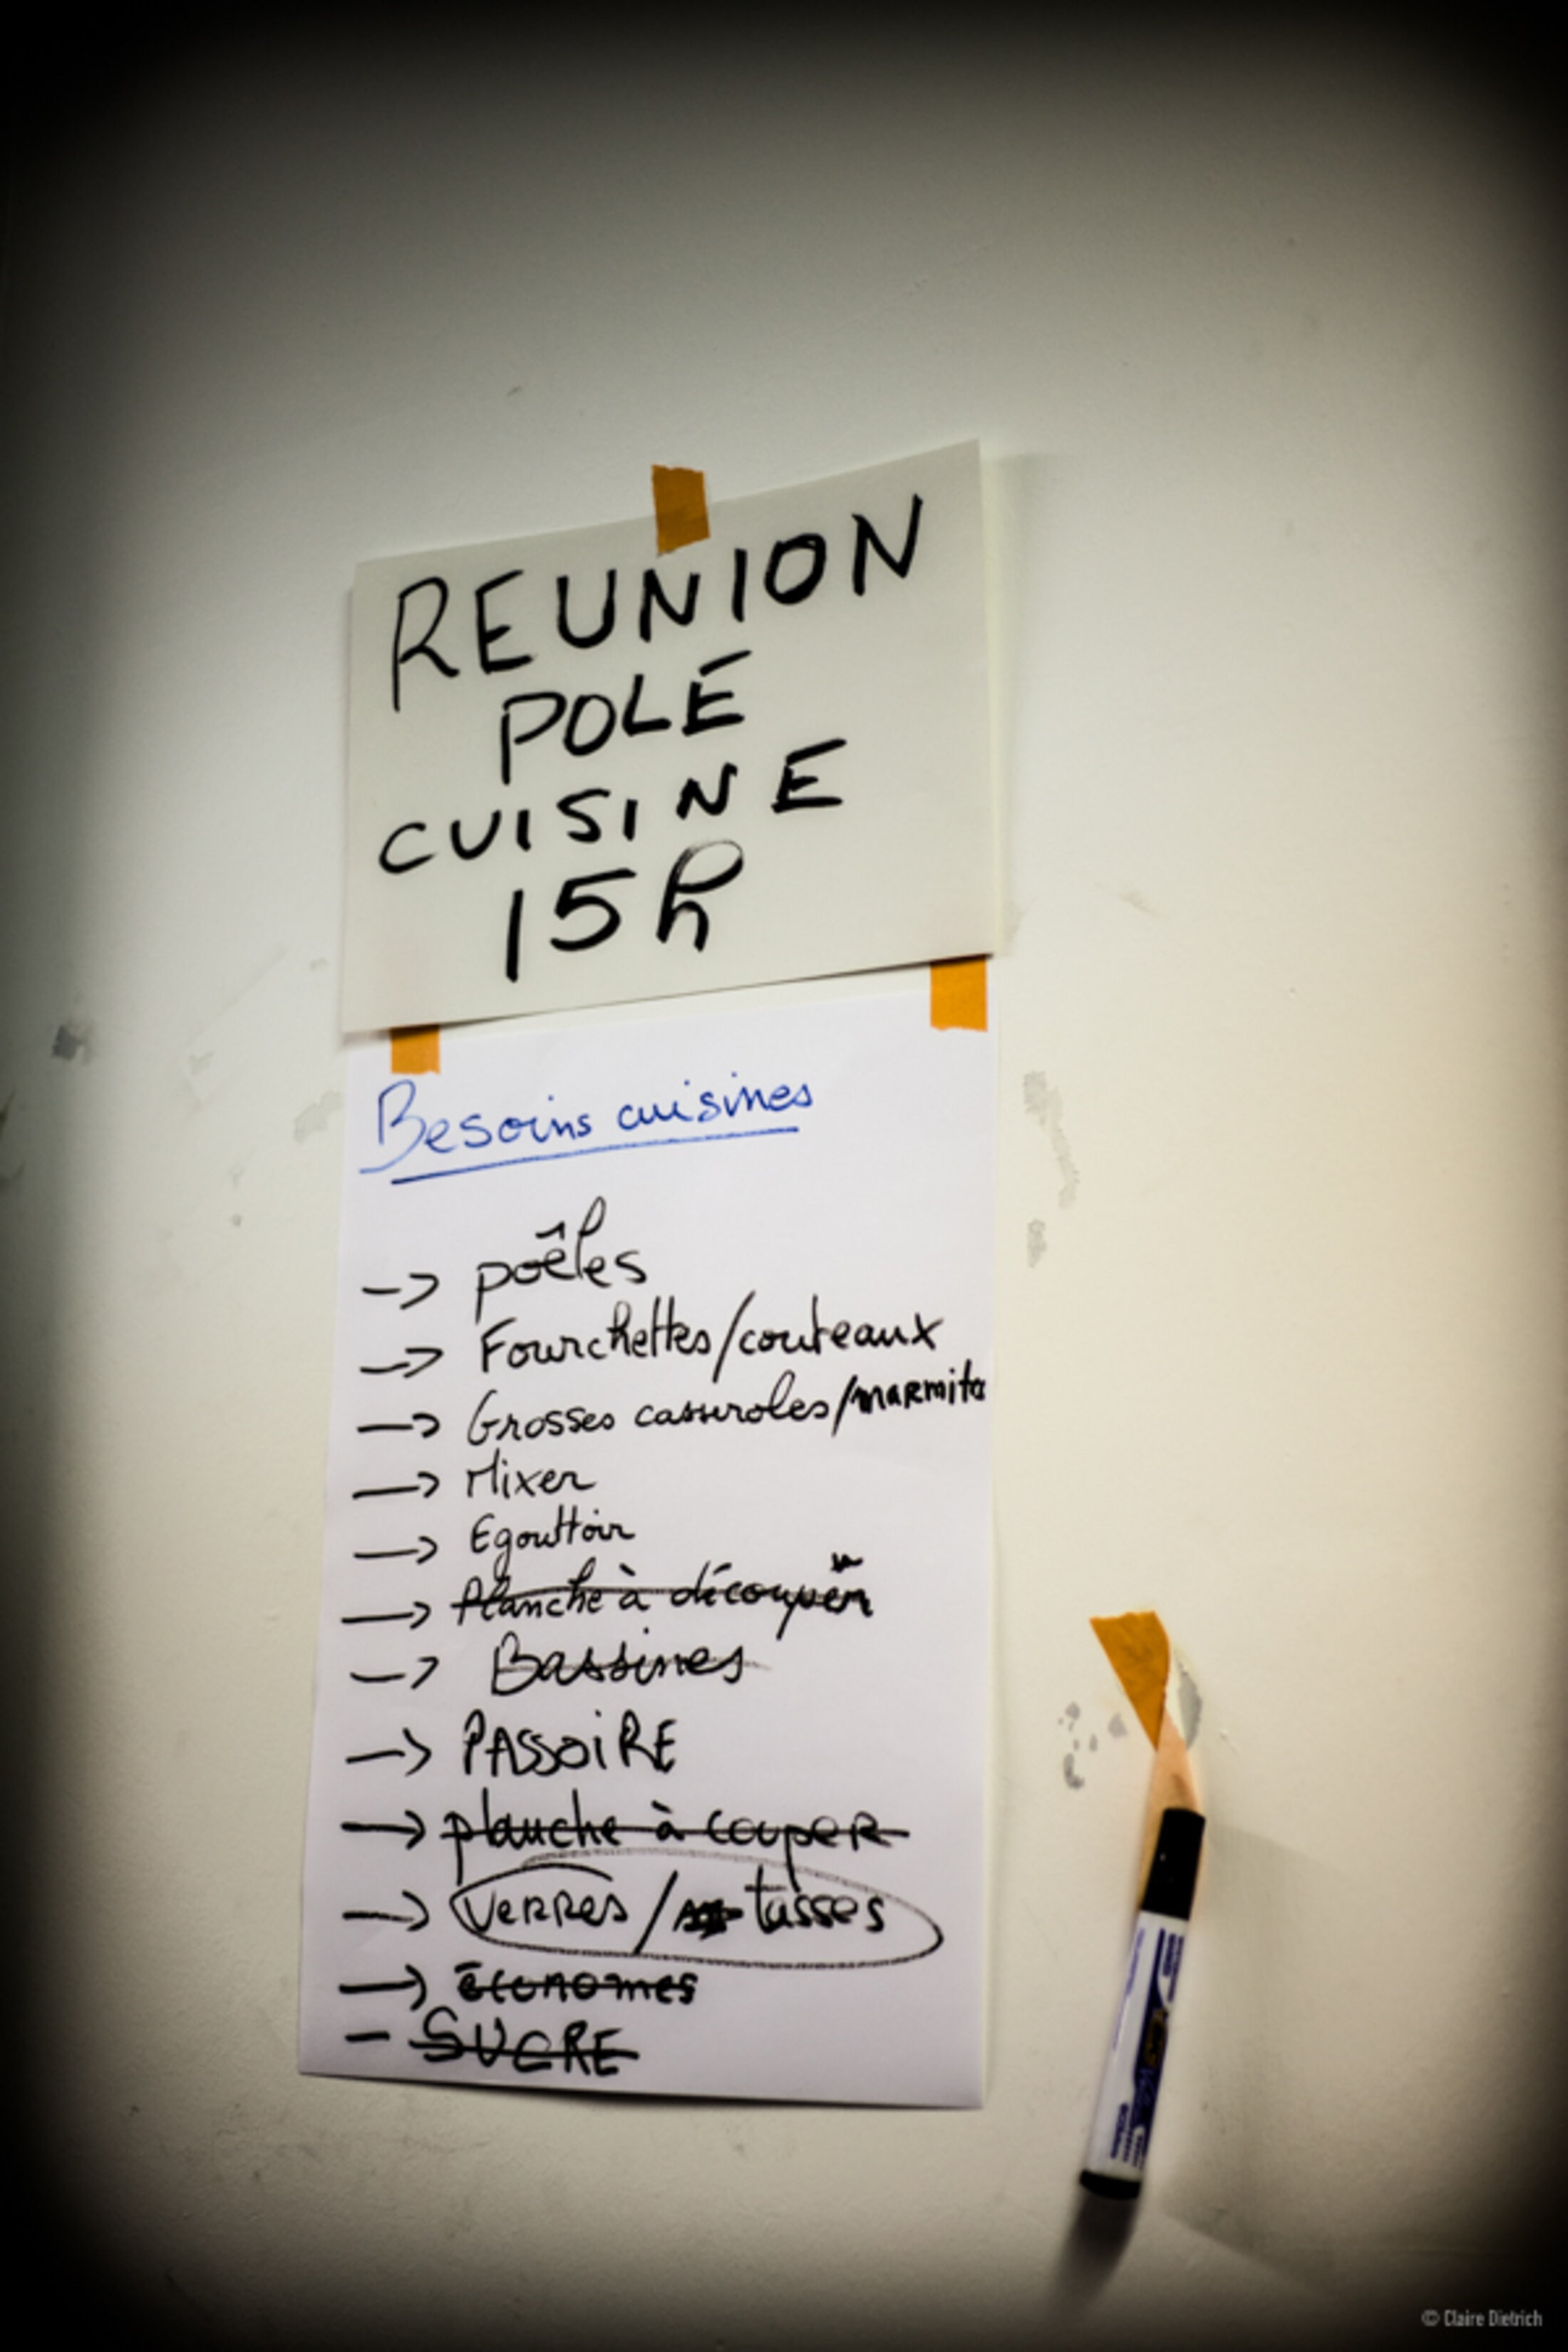 REUNION
POLE
CUISINE
15h
Besoins cuisines
-> poêles
-> Fourchettes/couteaux
-> Grosses casseroles/marmites
-> Mixer
-> Egouttoir
-> Planche à découper
-> Bassines
-> PASSOIRE
-> planche à couper
-> Verres/ tasses
-> économes
- SUCRE
© Claire Dietrich